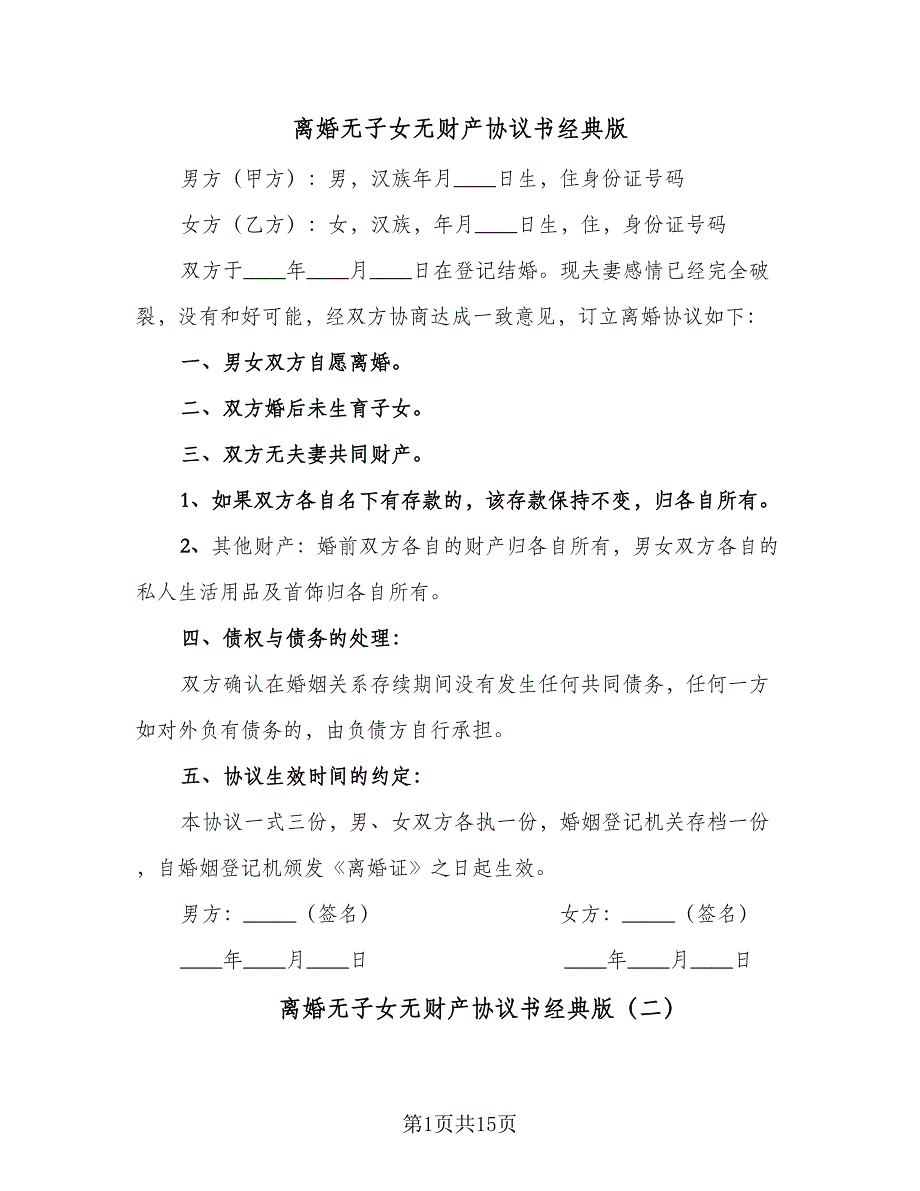 离婚无子女无财产协议书经典版
男方（甲方）：男，汉族年月____日生，住身份证号码
女方（乙方）：女，汉族，年月____日生，住，身份证号码
双方于____年____月____日在登记结婚。现夫妻感情已经完全破
裂，没有和好可能，经双方协商达成一致意见，订立离婚协议如下：
一、男女双方自愿离婚。
二、双方婚后未生育子女。
三、双方无夫妻共同财产。
1、如果双方各自名下有存款的，该存款保持不变，归各自所有。
2、其他财产：婚前双方各自的财产归各自所有，男女双方各自的
私人生活用品及首饰归各自所有。
四、债权与债务的处理：
双方确认在婚姻关系存续期间没有发生任何共同债务，任何一方
如对外负有债务的，由负债方自行承担。
五、协议生效时间的约定：
本协议一式三份，男、女双方各执一份，婚姻登记机关存档一份
，自婚姻登记机颁发《离婚证》之日起生效。
男方：_____（签名） 女方：_____（签名）
____年____月____日 ____年____月____日
离婚无子女无财产协议书经典版（二）
第1页共15页